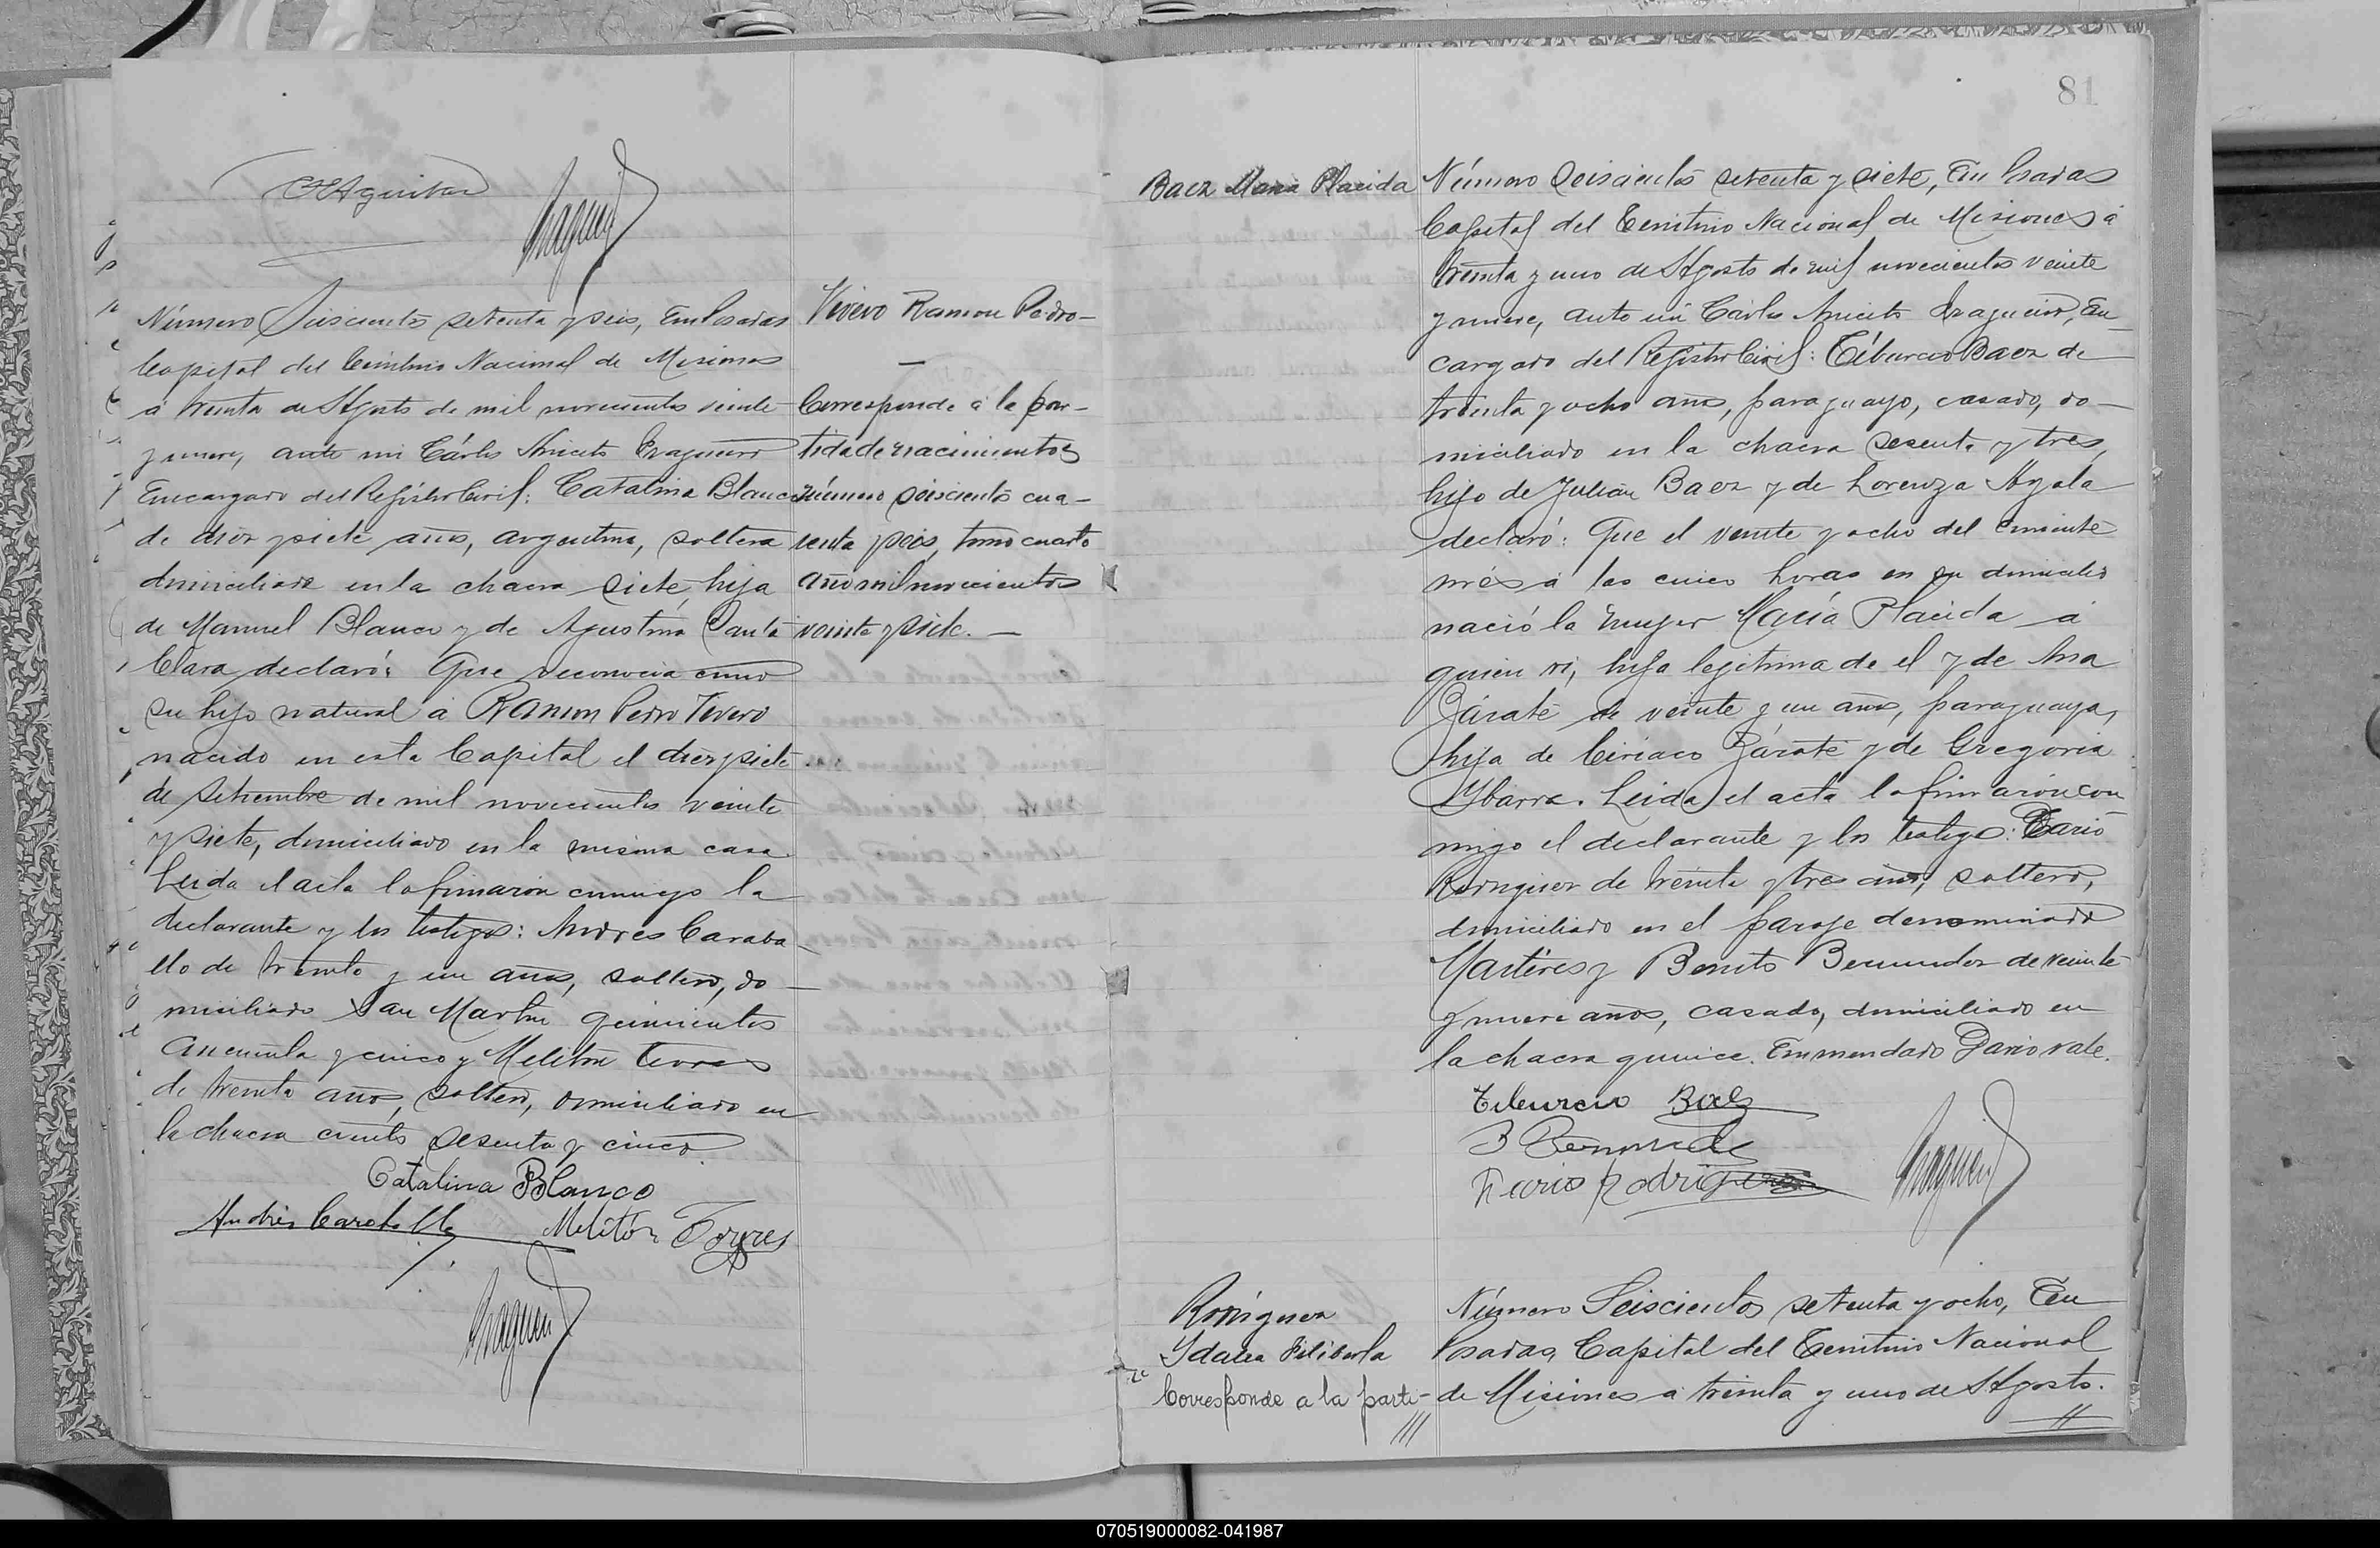 Aguilar
Número Seiscientos setenta y seis, En Posadas
Capital del Territorio Nacional de Misiones
á treinta de Agosto de mil novecientos veinte
y nueve, ante mi Cárlos Aniceto
Encargado del Registro Civil: Catalina Blanco
de diez y siete años, argentina, soltera
domiciliada en la chacra siete, hija
de Manuel Blanco y de Agustina Santa
Clara declaró: Que reconocia como
su hijo natural á Ramon Pedro Vivero
nacido en esta Capital el diez y siete
de Setiembre de mil novecientos veinte
y siete, domiciliado en la misma casa.
Leida el acta la firmaron conmigo la
declarante y los testigos: Andres Caraba-
llo de treinta y un años, soltero, do-
miciliado San Martin quinientos
cincuenta y cinco y Meliton Torres
de treinta años, soltero, domiciliado en
la chacra ciento sesenta y cinco.
Catalina Blanco
Andrés Caraballo Melitón Torres
Vivero Ramon Pedro-
—
Corresponde á la par-
tida de nacimientos
número seiscientos cua-
renta y seis, tomo cuarto
año mil novecientos
veinte y siete. —
81
Baez Maria Placida
Número Seiscientos setenta y siete, En Posadas
Capital del Territorio Nacional de Misiones á
treinta y uno de Agosto de mil novecientos veinte
y nueve, ante mi Cárlos Aniceto En-
cargado del Registro Civil: Tiburcio Baez de
treinta y ocho años, paraguayo, casado, do-
miciliado en la chacra sesenta y tres,
hijo de Julián Baez y de Lorenza Ayala
declaró: Que el veinte y ocho del corriente
més á las cinco horas en su domicilio
nació la mujer María Placida á
quien vi, hija legitima de el y de Ana
Zárate de veinte y un años, paraguaya,
hija de Ciriaco Zárate y de Gregoria
Ybarra. Leida el acta la firmaron con-
migo el declarante y los testigos: Dario
Rodriguez de treinta y tres años, soltero,
domiciliado en el paraje denominado
Martires y Benito Bermudez de veinte
y nueve años, casado, domiciliado en
la chacra quince. Enmendado Dario vale.
Tiburcio Baez
B Bermudez
Dario Rodriguez
Rodriguez
Ydalia Filiberta
Corresponde a la parti-
///
Número Seiscientos setenta y ocho, En
Posadas, Capital del Territorio Nacional
de Misiones á treinta y uno de Agosto.
//
070519000082-041987